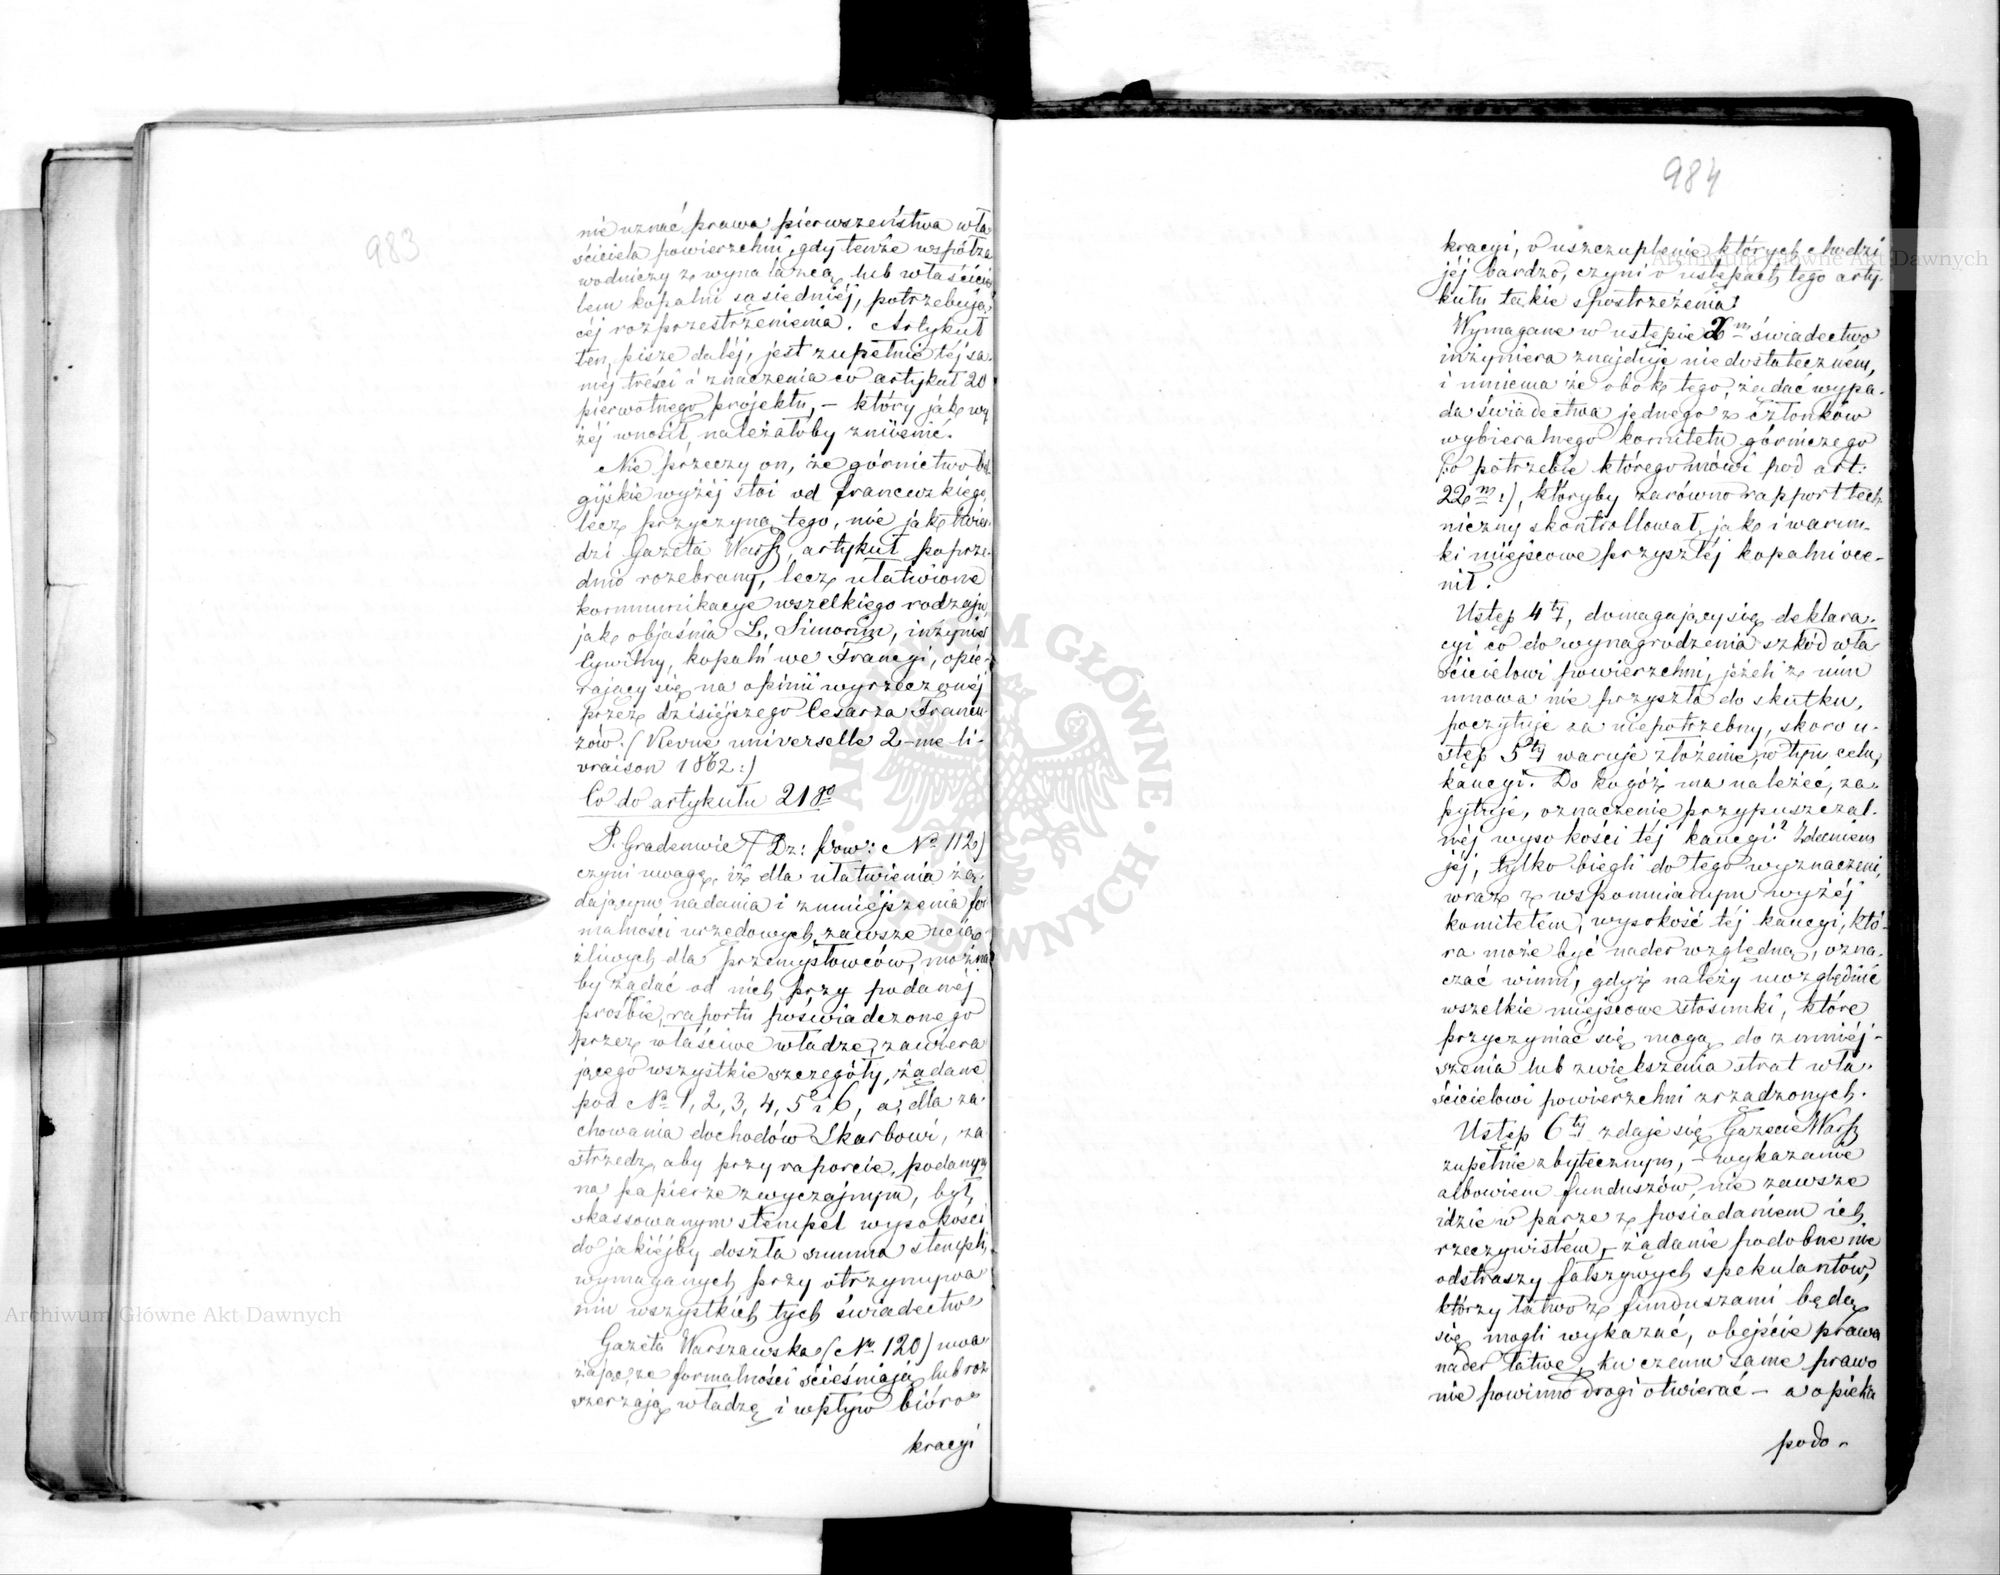 983
nie uznać prawa pierwszeństwa wła
ściciela powierzchni, gdy tenże współza
wodniczy z wynalazcą, lub właścicie
lem kopalni sąsiedniéj, potrzebują
céj rozprzestrzenienia. Artykuł
ten, pisze daléj, jest zupełnie téj sa
méj treści i znaczenia co artykuł 20
pierwotnego projektu, – który jak wy
żéj wnosił, należałoby zmienić.
Nie przeczy on, że górnictwo bel
gijskie wyżéj stoi od francuzkiego,
lecz przyczyną tego, nie jak twier
dzi Gazeta Warsz, artykuł poprze-
dnio rozebrany, lecz ułatwione
kommunikacye wszelkiego rodzaju,
jak objaśnia L. Simonin, inżynier
Cywilny, kopalń we Francyi, opie-
rający się na opinii wyrzeczonéj
przez dzisiejszego Cesarza Francu-
zów. (Revue universelle 2-me li-
vraison 1862:)
Co do artykułu 21go
P. Gradenwic (Dz: pow: No 112)
czyni uwagę, iż dla ułatwienia żą-
dającym nadania i zmniejszenia for
malności urzędowych, zawsze uciąż
żliwych dla przemysłowców, można
by żądać od nich przy podanéj
prośbie, raportu poświadczonego
przez właściwe władze, zawiera
jącego wszystkie szczegóły, żądane
pod No 1, 2, 3, 4, 5 i 6, a dla za-
chowania dochodów Skarbowi, za
strzedz, aby przy raporcie, podanym
na papierze zwyczajnym, był
skassowanym stempel wysokości
do jakiéjby doszła summa stempli,
wymaganych przy otrzymywa
niu wszystkich tych świadectw
Gazeta Warszawska (No 120) uwa
żając, że formalności ścieśniają lub roz
szerzają władzę i wpływ bióro
kracyi
984
kracyi, o uszczuplenie których chodzi
jéj bardzo, czyni o ustępach tego arty-
kułu takie spostrzeżenia:
Wymagane w ustępie 2m świadectwo
inżyniera znajduje niedostateczném,
i mniema że obok tego, żądać wypa-
da świadectwa jednego z członków
wybieralnego komitetu górniczego
(:o potrzebie którego mówi pod art:
22m:), któryby zarówno rapport tech
niczny skontrollował, jak i warun-
ki miejscowe przyszłéj kopalni oce-
nił.
Ustęp 4ty, domagający się deklara-
cyi co do wynagrodzenia szkód wła
ścicielowi powierzchni, jeżeli z nim
umowa nie przyszła do skutku,
poczytuje za niepotrzebny, skoro u-
stęp 5ty waruje złożenie, w tym celu,
kaucyi. Do kogóż ma należéć, za-
pytuje, oznaczenie przypuszczal-
néj wysokości téj kaucyi? Zdaniem
jéj, tylko biegli do tego wyznaczeni,
wraz z wspomnianym wyżéj
komitetem, wysokość téj kaucyi, któ-
ra może być nader względną, ozna-
czać winni, gdyż należy uwzględnić
wszelkie miejscowe stosunki, które
przyczyniać się mogą do zmniéj-
szenia lub zwiększenia strat wła-
ścicielowi powierzchni zrządzonych.
Ustęp 6ty zdaje się Gazecie Warsz
zupełnie zbytecznym, – wykazanie
albowiem funduszów, nie zawsze
idzie w parze z posiadaniem ich
rzeczywistem, – żądanie podobne nie
odstraszy fałszywych spekulantów,
którzy łatwo z funduszami będą
się mogli wykazać, obejście prawa
nader łatwe, ku czemu same prawo
nie powinno drogi otwierać – a opieka
podo-
Archiwum Główne Akt Dawnych
Archiwum Główne Akt Dawnych
ARCHIWUM GŁÓWNE AKT DAWNYCH